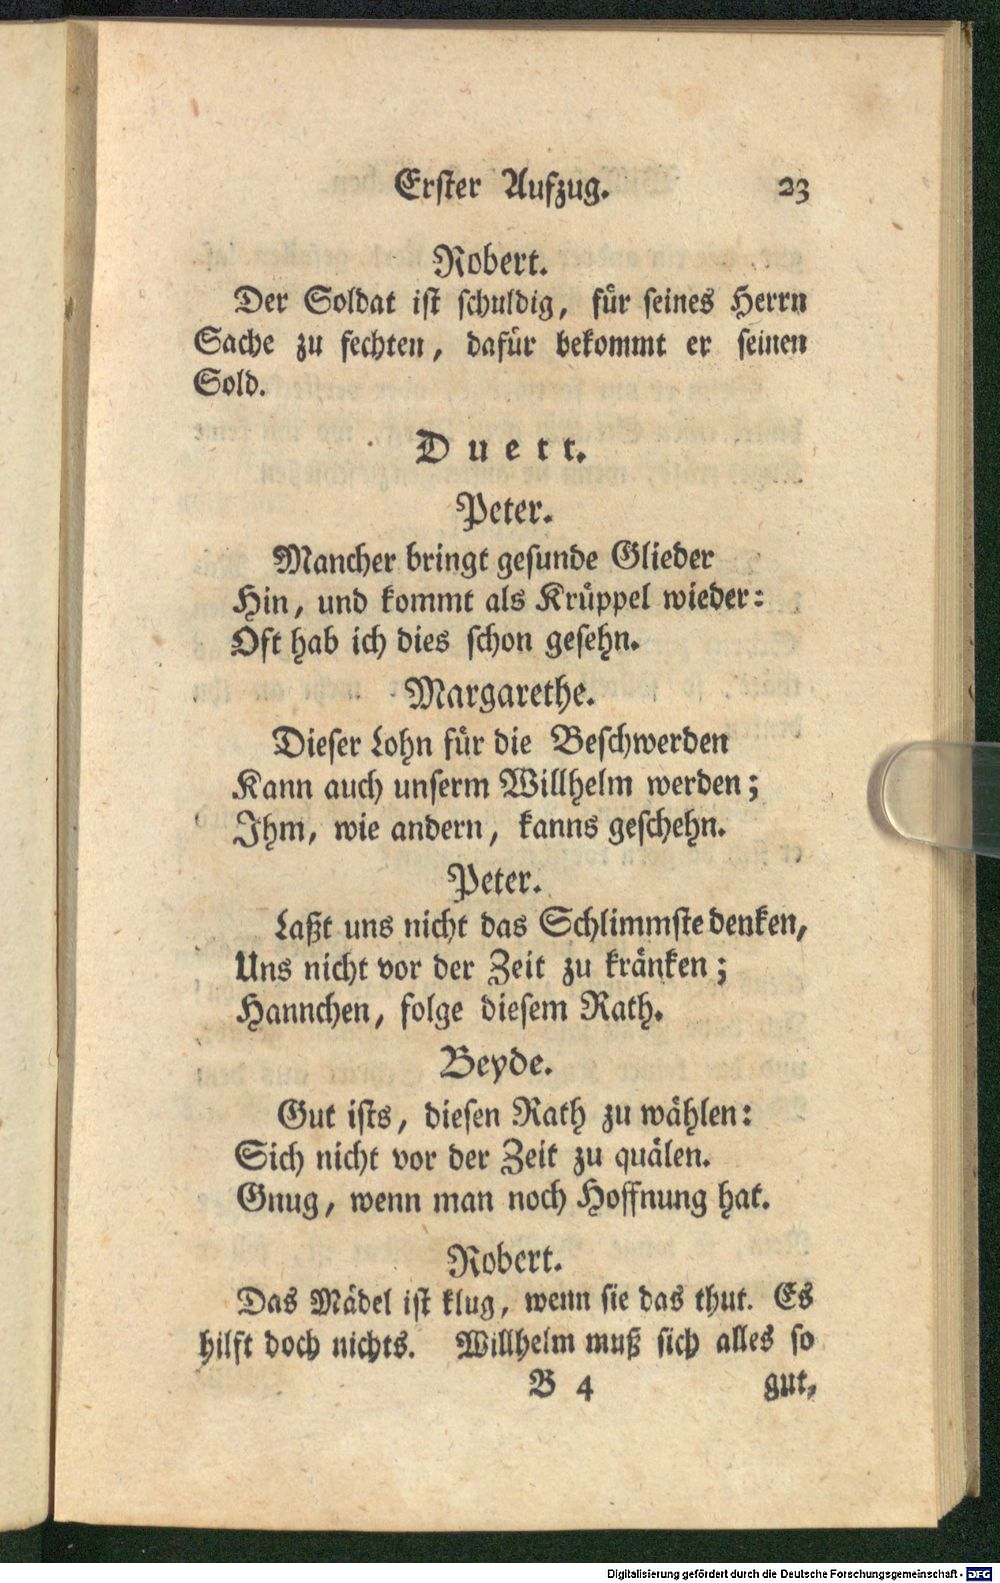 Erster Aufzug. 23
Robert.
Der Soldat ist schuldig, für seines Herrn
Sache zu fechten, dafür bekommt er seinen
Sold.
Duett.
Peter.
Mancher bringt gesunde Glieder
Hin, und kommt als Krüppel wieder:
Oft hab ich dies schon gesehn.
Margarethe.
Dieser Lohn für die Beschwerden
Kann auch unserm Willhelm werden;
Ihm, wie andern, kanns geschehn.
Peter.
Laßt uns nicht das Schlimmste denken,
Uns nicht vor der Zeit zu kränken;
Hannchen, folge diesem Rath.
Beyde.
Gut ists, diesen Rath zu wählen:
Sich nicht vor der Zeit zu quälen.
Gnug, wenn man noch Hoffnung hat.
Robert.
Das Mädel ist klug, wenn sie das thut. Es
hilft doch nichts. Willhelm muß sich alles so
B 4 gut,
Digitalisierung gefördert durch die Deutsche Forschungsgemeinschaft - DFG